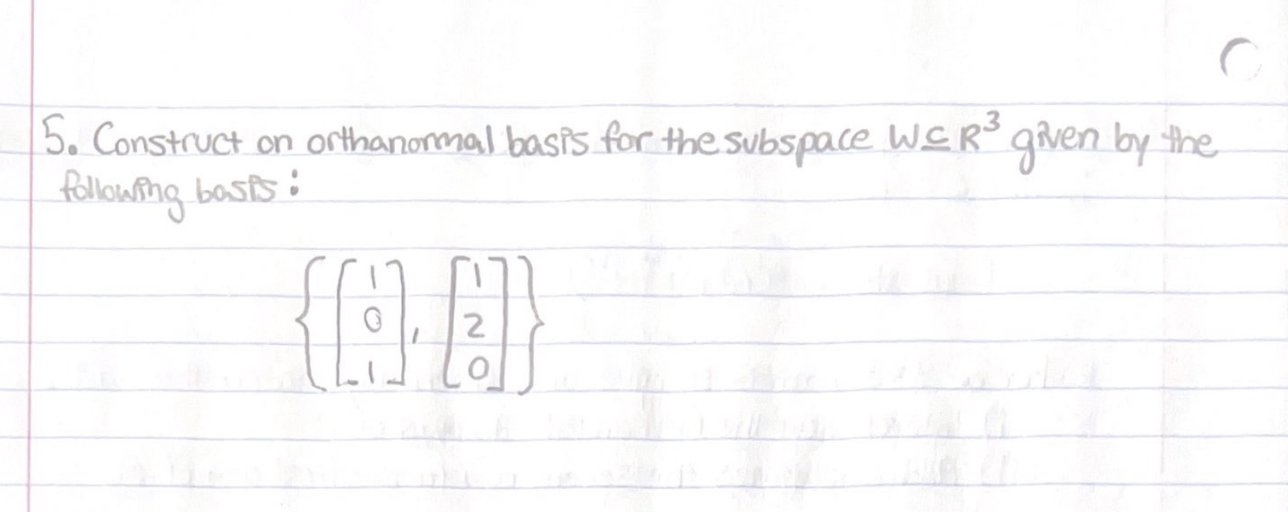 5. Construct on orthanormal basis for the subspace W ⊆ R³ given by the
following basis:
{[1 0 1], [1 2 0]}